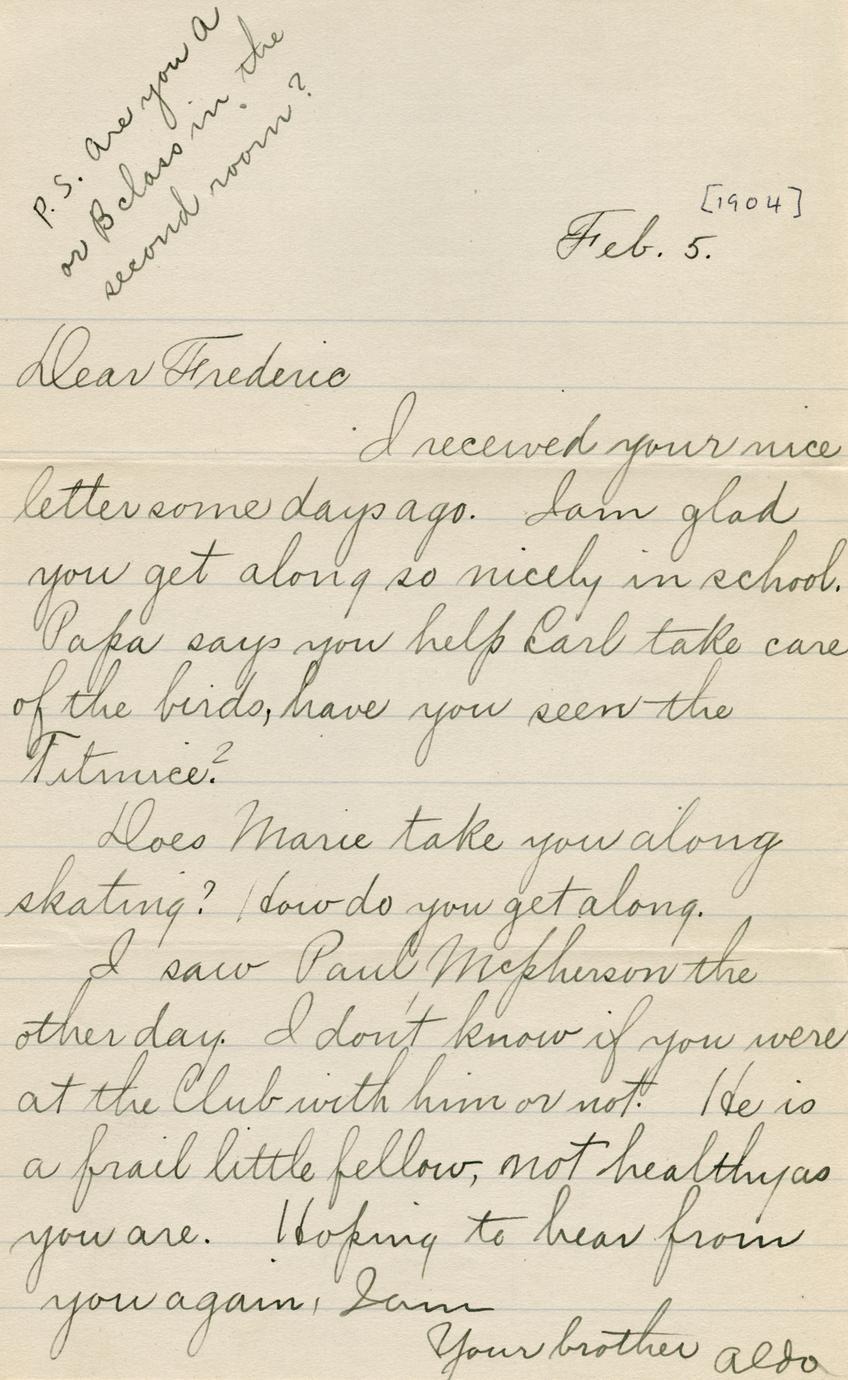 P.S. Are you A
or B class in the
second room?
[1904]
Feb. 5.
Dear Frederic
I received your nice
letter some days ago. I am glad
you get along so nicely in school.
Papa says you help Carl take care
of the birds, have you seen the
Titmice?
Does Marie take you along
skating? How do you get along.
I saw Paul Mcpherson the
other day. I don't know if you were
at the Club with him or not. He is
a frail little fellow, not healthy as
you are. Hoping to hear from
you again, I am
Your brother Aldo